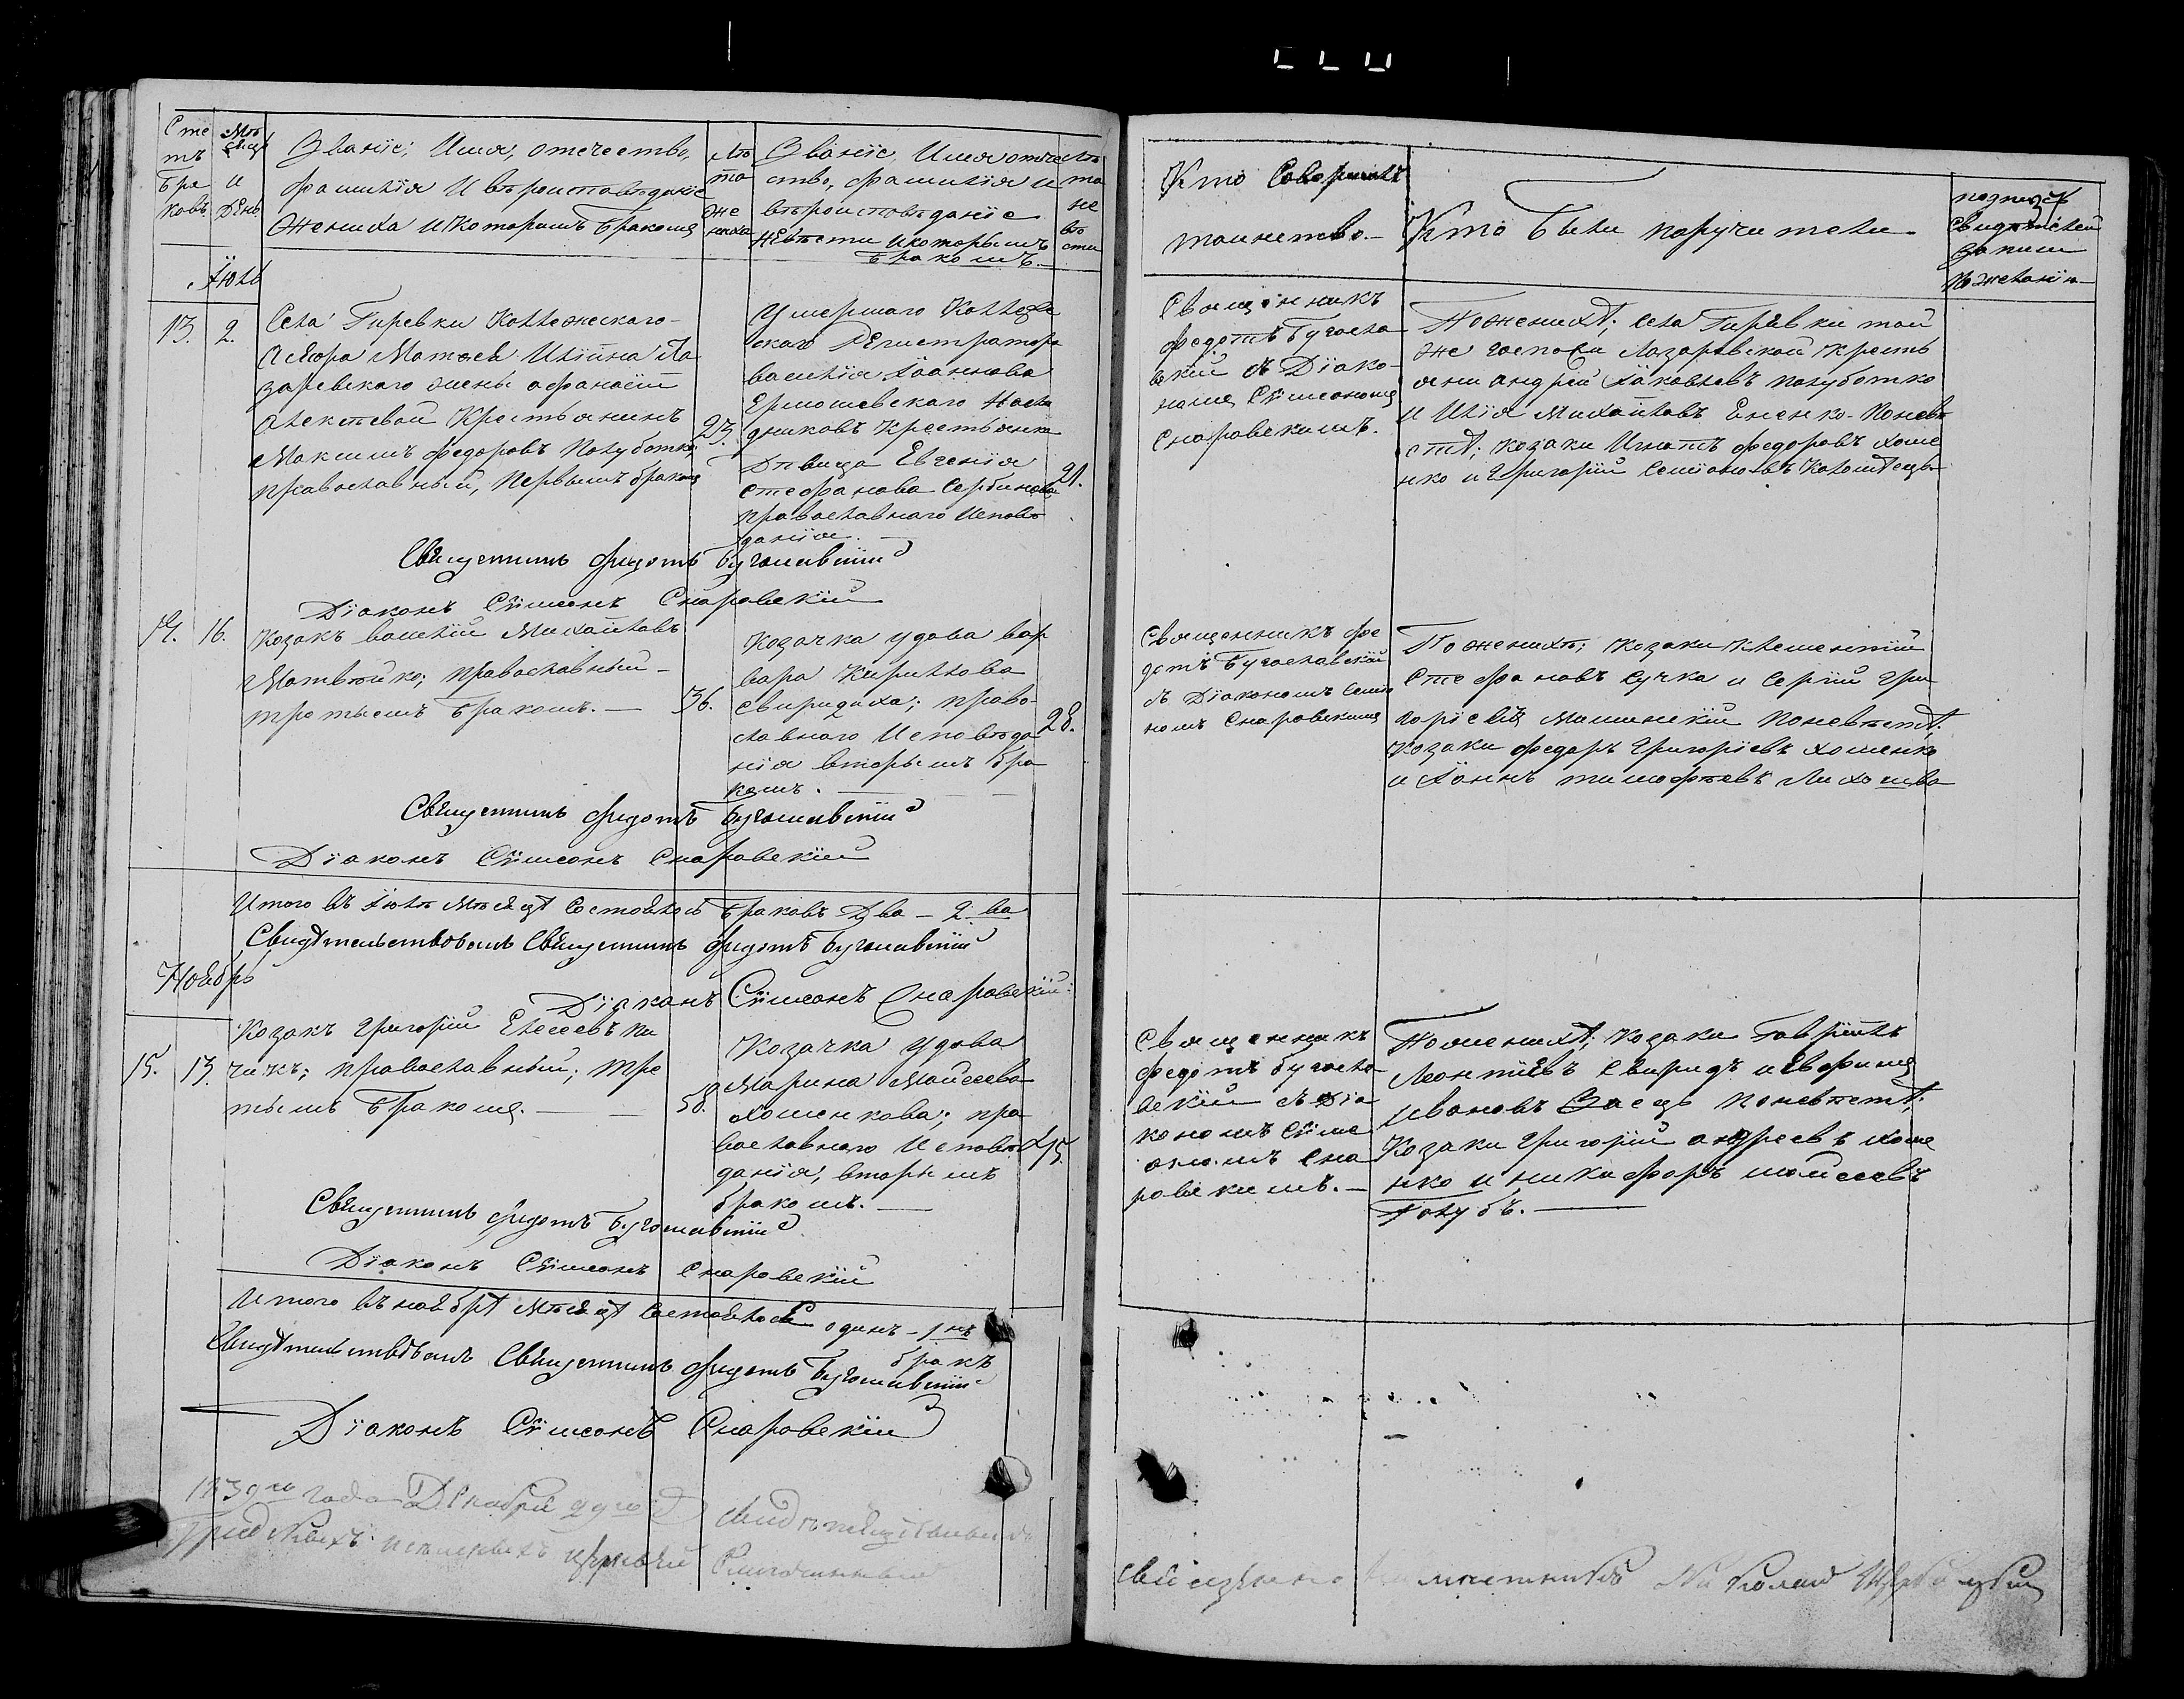 Сче
тъ
бра
ковъ
Мѣ
сяцъ
и
день
Званїе, Имя, отечество,
фамилїя и вѣроисповѣданїе
жениха и которымъ бракомъ
лѣ
та
же
ниха
Званїе, Имя отече
ство, фамилїя и
вѣроисповѣданїе
невѣсты и которымъ
бракомъ.
лѣ
та
не
вѣ
сты
Кто совершалъ
таинство.
Кто были поручители
подпись
свидѣтелей
записи
по желанїю
Іюль
13. 2.
Села Гиревки Коллежскаго
Асесора Матвея Илїина Ла
заревскаго жены Афанасїи
Алексѣевой Крестьянинъ
Максимъ Федоровъ Полуботко
православный, первымъ бракомъ
23.
Умершаго Коллеж
скаго Регистратора
Василїя Іоаннова
Ермошевскаго Насле
дниковъ крестьянка
Дѣвица Евгенїя
Стефанова Сербинова
православнаго Исповѣ
данїя.
21.
Священникъ
Федотъ Бугослав
скїй съ Дїако
номъ Сѵмеономъ
Снаровскимъ.
По женихѣ; села Гиревки той
же госпожи Лазаревской кресть
яни Андрей Іаковлевъ Полуботко
и Илїя Михайловъ Ененко. По невѣ
стѣ; козаки Игнатъ Федоровъ Хоме
нко и Григорїй Семїоновъ Коломѣецъ
Священникъ Федотъ Бугославскїй
Дїаконъ Сѵмеонъ Снаровскїй
14. 16.
Козакъ Василїй Михайловъ
Матвѣйко; православный
третьимъ бракомъ.
36.
Козачка удова Вар
вара Кириллова
Свиридиха; право
славнаго Исповѣда
нїя вторымъ бра
комъ.
28.
Священникъ Фе
дотъ Бугославскїй
съ Дїакономъ Семїо
номъ Снаровскимъ
По женихѣ; козаки Клементїй
Стефановъ Сучка и Сергїй Гри
горїевъ Машинскїй По невѣстѣ.
козаки Федоръ Григорїевъ Хоменко
и Іоаннъ Тимофѣевъ Лихошва
Священникъ Федотъ Бугославскїй
Дїаконъ Сѵмеонъ Снаровскїй
Итого въ Іюлѣ мѣсяцѣ состоялось браковъ Два — 2 ва
Свидѣтельствовалъ Священникъ Федотъ Бугославскїй
Дїаконъ Сѵмеонъ Снаровскїй.
Ноябрь
15. 13.
Козакъ Григорїй Елесеевъ Ки
чикъ; православный; тре
тьимъ бракомъ.
58.
Козачка удова
Марина Мойсеева
Хоменкова; пра
вославнаго Исповѣ
данїя, вторымъ
бракомъ.
45.
Священникъ
Федотъ Бугослав
скїй съ Дїа
кономъ Сѵме
ономъ Сна
ровскимъ.
По женихѣ; козаки Гаврїилъ
Леонтїевъ Свиридъ и Ефимъ
Ивановъ Заецъ По невѣстѣ;
Козаки Григорїй Андреевъ Хоме
нко и Никифоръ Мойсеевъ
Голубъ.
Священникъ Федотъ Бугославскїй
Дїаконъ Сѵмеонъ Снаровскїй
Итого въ ноябрѣ мѣсяцѣ состоялось одинъ — 1 нъ
бракъ
Свидѣтельствовалъ Священникъ Федотъ Бугославскїй
Дїаконъ Сѵмеонъ Снаровскїй
года Декабря 29 го
Свидѣтельствовалъ
священно Николай